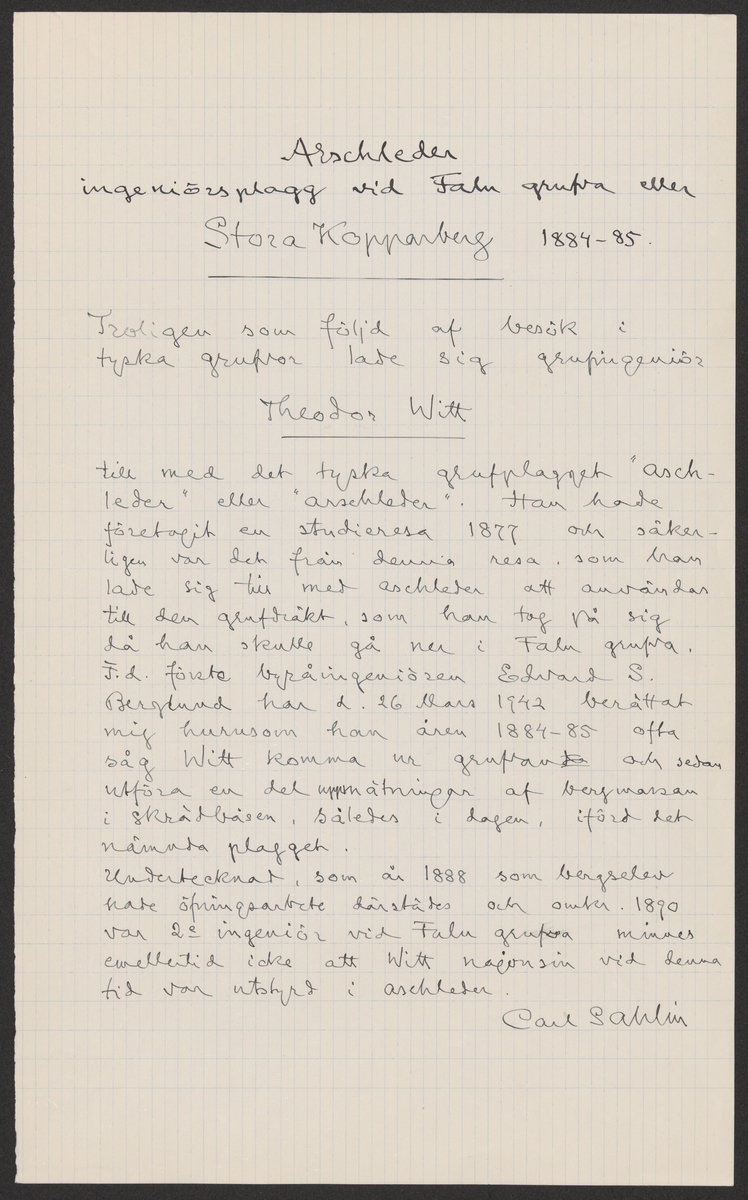 Arschleder
ingeniörsplagg vid Falu grufva eller
Stora Kopparberg 1884-85.
Troligen som följd af besök i
tyska grufvor lade sig grufingeniör
Theodor Witt
till med det tyska grufplagget "asch-
leder" eller "arschleder". Han hade
företagit en studieresa 1877 och säker-
ligen var det från denna resa, som han
lade sig till med aschleder att användas
till den grufdräkt, som han tog på sig
då han skulle gå ner i Falu grufva.
F.d. förste byråingeniören Edvard S.
Berglund har d. 26 Mars 1942 berättat
mig hurusom han åren 1884-85 ofta
såg Witt komma ur grufvan och sedan
utföra en del uppmätningar af bergmassan
i skrädbåsen, således i dagen, iförd det
nämnda plagget.
Undertecknad, som år 1888 som bergselev
hade öfningsarbete därstädes och omkr. 1890
var 2e ingeniör vid Falu grufva minnes
emellertid icke att Witt någonsin vid denna
tid var utstyrd i aschleder.
Carl Sahlin